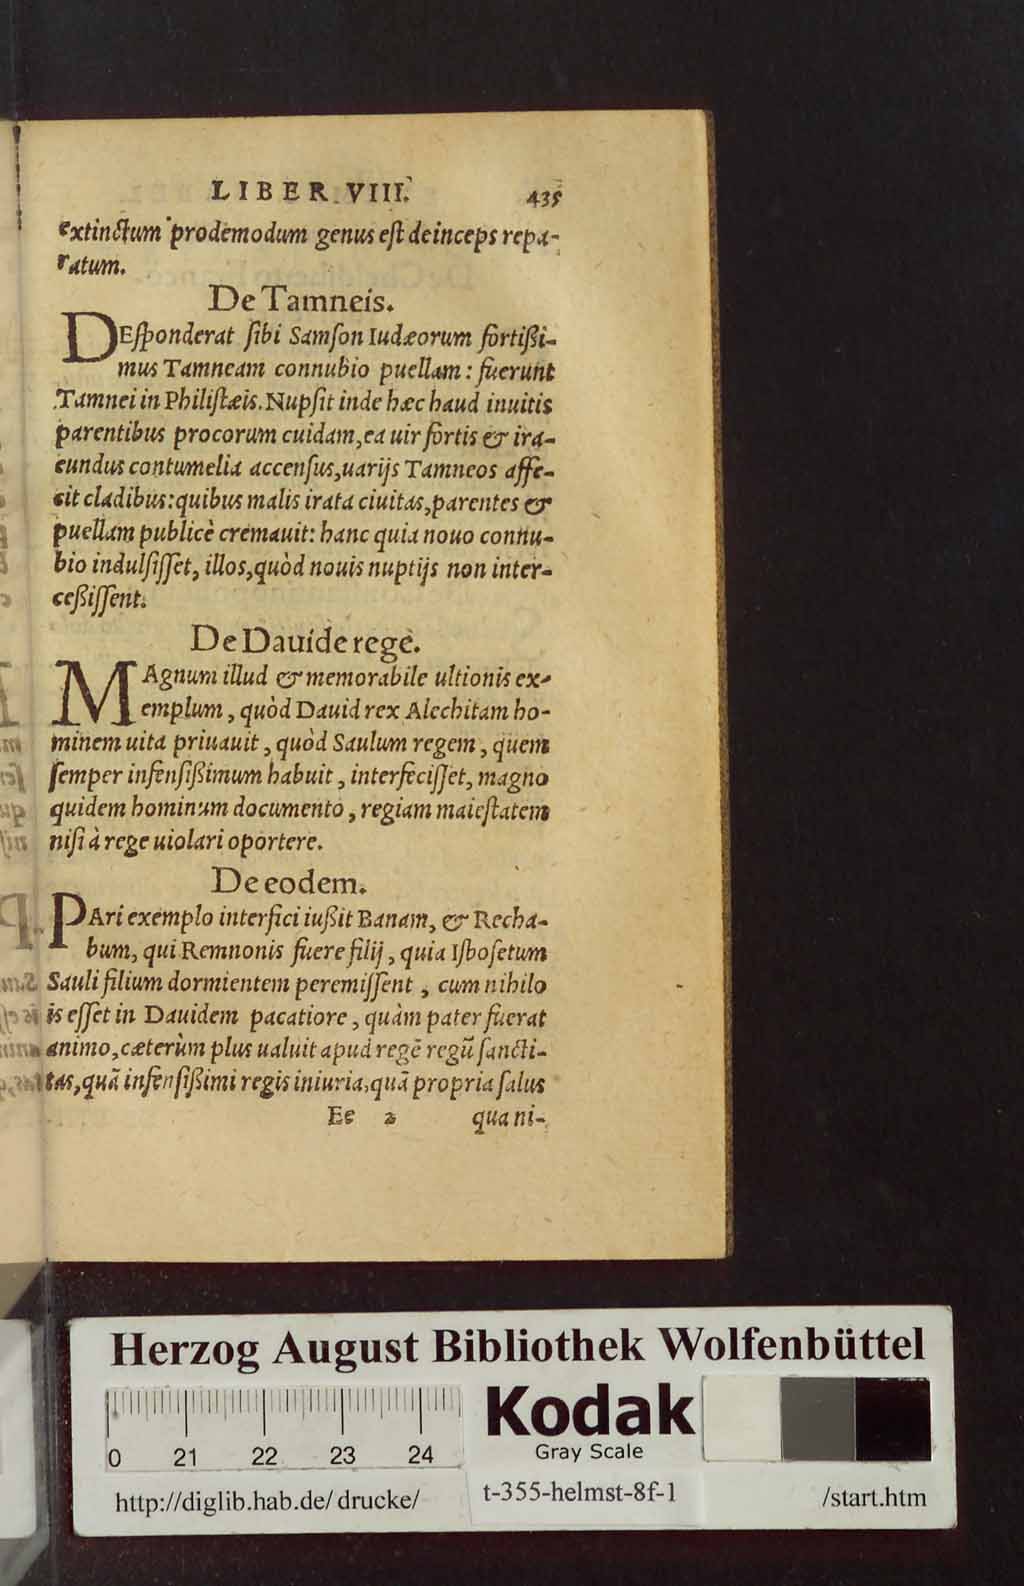 LIBER VIII. 435
extinctum prodemodum genus eſt deinceps repa-
ratum.
De Tamneis.
DEſponderat ſibi Samſon Iudæorum fortißi-
mus Tamneam connubio puellam: fuerunt
Tamnei in Philiſtæis. Nupſit inde hæc haud inuitis
parentibus procorum cuidam, ea uir fortis & ira-
cundus contumelia accenſus, uarijs Tamneos affe-
cit cladibus: quibus malis irata ciuitas, parentes &
puellam publicè cremauit: hanc quia nouo connu-
bio indulſiſſet, illos, quòd nouis nuptijs non inter-
ceßiſſent.
De Dauide rege.
MAgnum illud & memorabile ultionis ex-
emplum, quòd Dauid rex Alechitam ho-
minem uita priuauit, quòd Saulum regem, quem
ſemper infenſißimum habuit, interfeciſſet, magno
quidem hominum documento, regiam maieſtatem
niſi à rege uiolari oportere.
De eodem.
PAri exemplo interfici iußit Banam, & Recha-
bum, qui Remnonis fuere filij, quia Iſboſetum
Sauli filium dormientem peremiſſent, cum nihilo
is eſſet in Dauidem pacatiore, quàm pater fuerat
animo, cæterùm plus ualuit apud regē regū ſancti-
tas, quā infenſißimi regis iniuria, quā propria ſalus
Ee 2 qua ni-
Herzog August Bibliothek Wolfenbüttel
Kodak
Gray Scale
0 21 22 23 24
http://diglib.hab.de/drucke/ t-355-helmst-8f-1 /start.htm